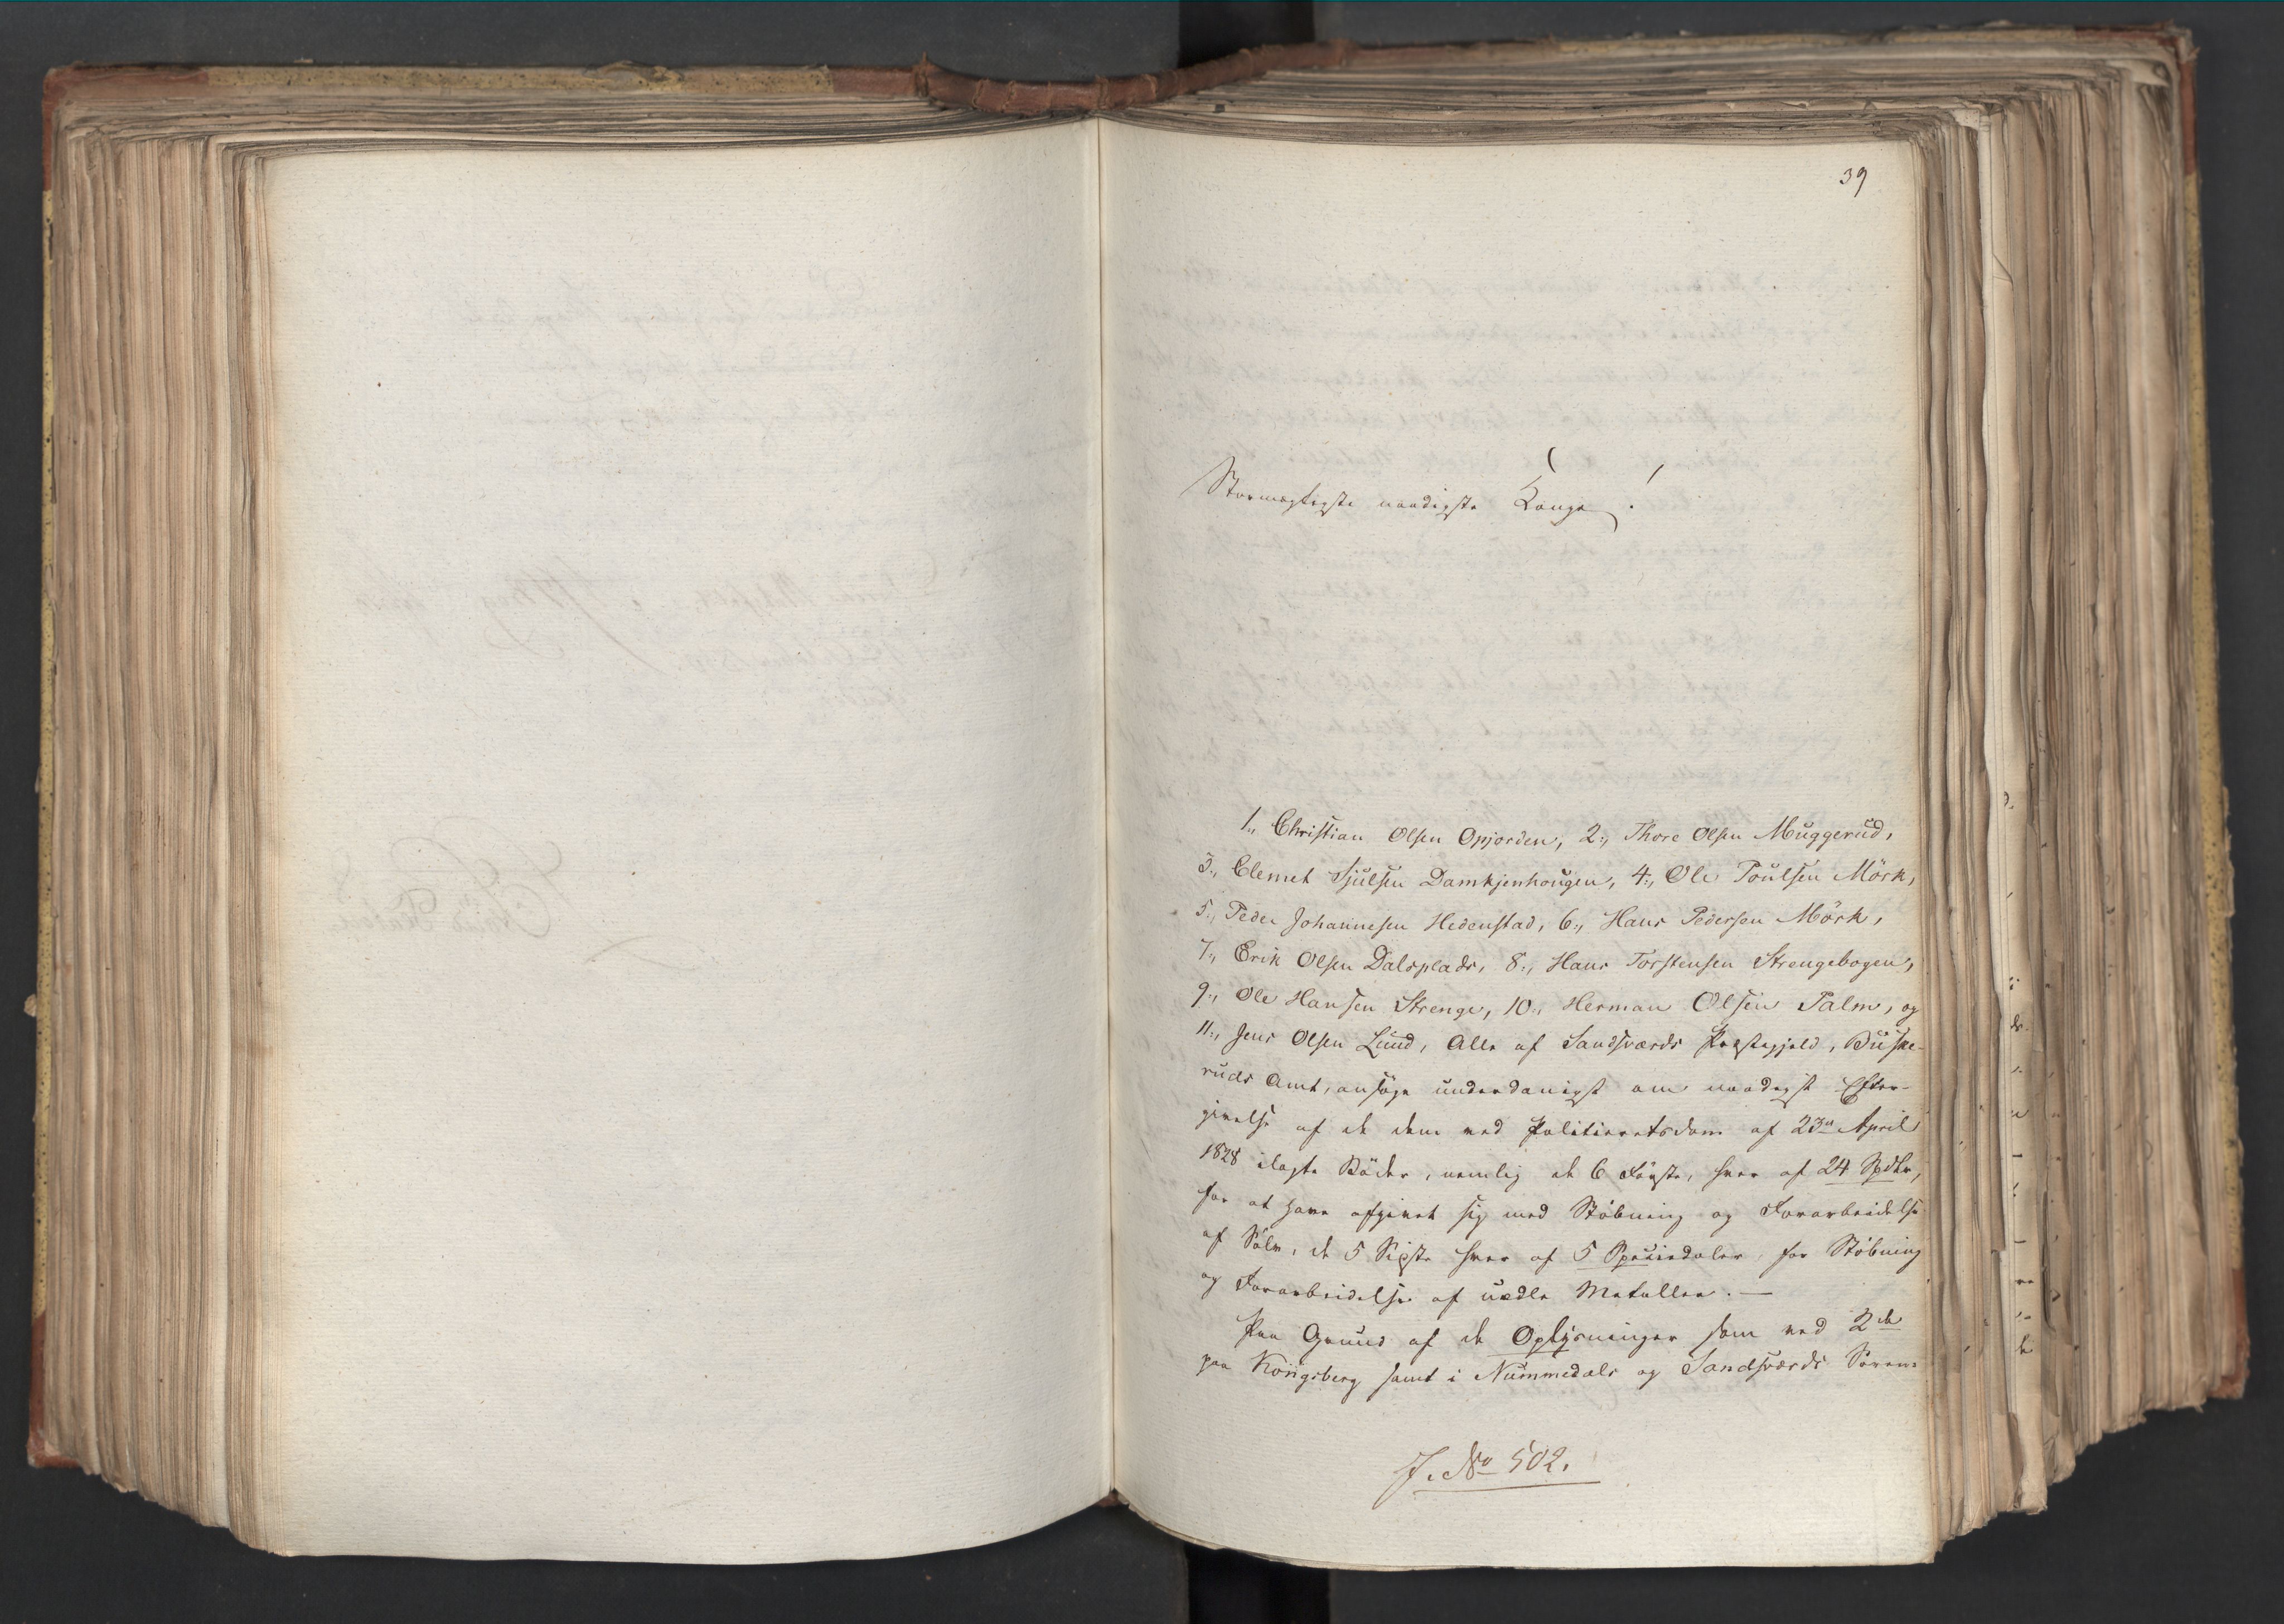 39
Stormægtigste naadigste Konge!
1., Christian Olsen Opjorden, 2., Thore Olsen Muggerud,
3., Clemet Sjulsen Damkjenhougen, 4., Ole Poulsen Mörk,
5., Peder Johannesen Hedenstad, 6., Hans Pedersen Mörk,
7., Erik Olsen Dalsplads, 8., Hans Torstensen Strengebogen,
9., Ole Hansen Strenge, 10., Herman Olsen Palm, og
11., Jens Olsen Lund, Alle af Sandsværds Præstegjeld, Buske-
ruds Amt, ansöge underdanigst om naadigst Efter-
givelse af de dem ved Politieretsdom af 23de April
1828 ilagte Böder, nemlig de 6 Förste, hver af 24 Spdlr,
for at have afgivet sig med Stöbning og Forarbeidelse
af Sölv, de 5 Sidste hver af 5 Speciedaler, for Stöbning
og Forarbeidelse af uædle Metaller. —
Paa Grund af de Oplysninger som ved 2de
paa Kongsberg samt i Nummedals og Sandsværds Soren-
J. No 502.